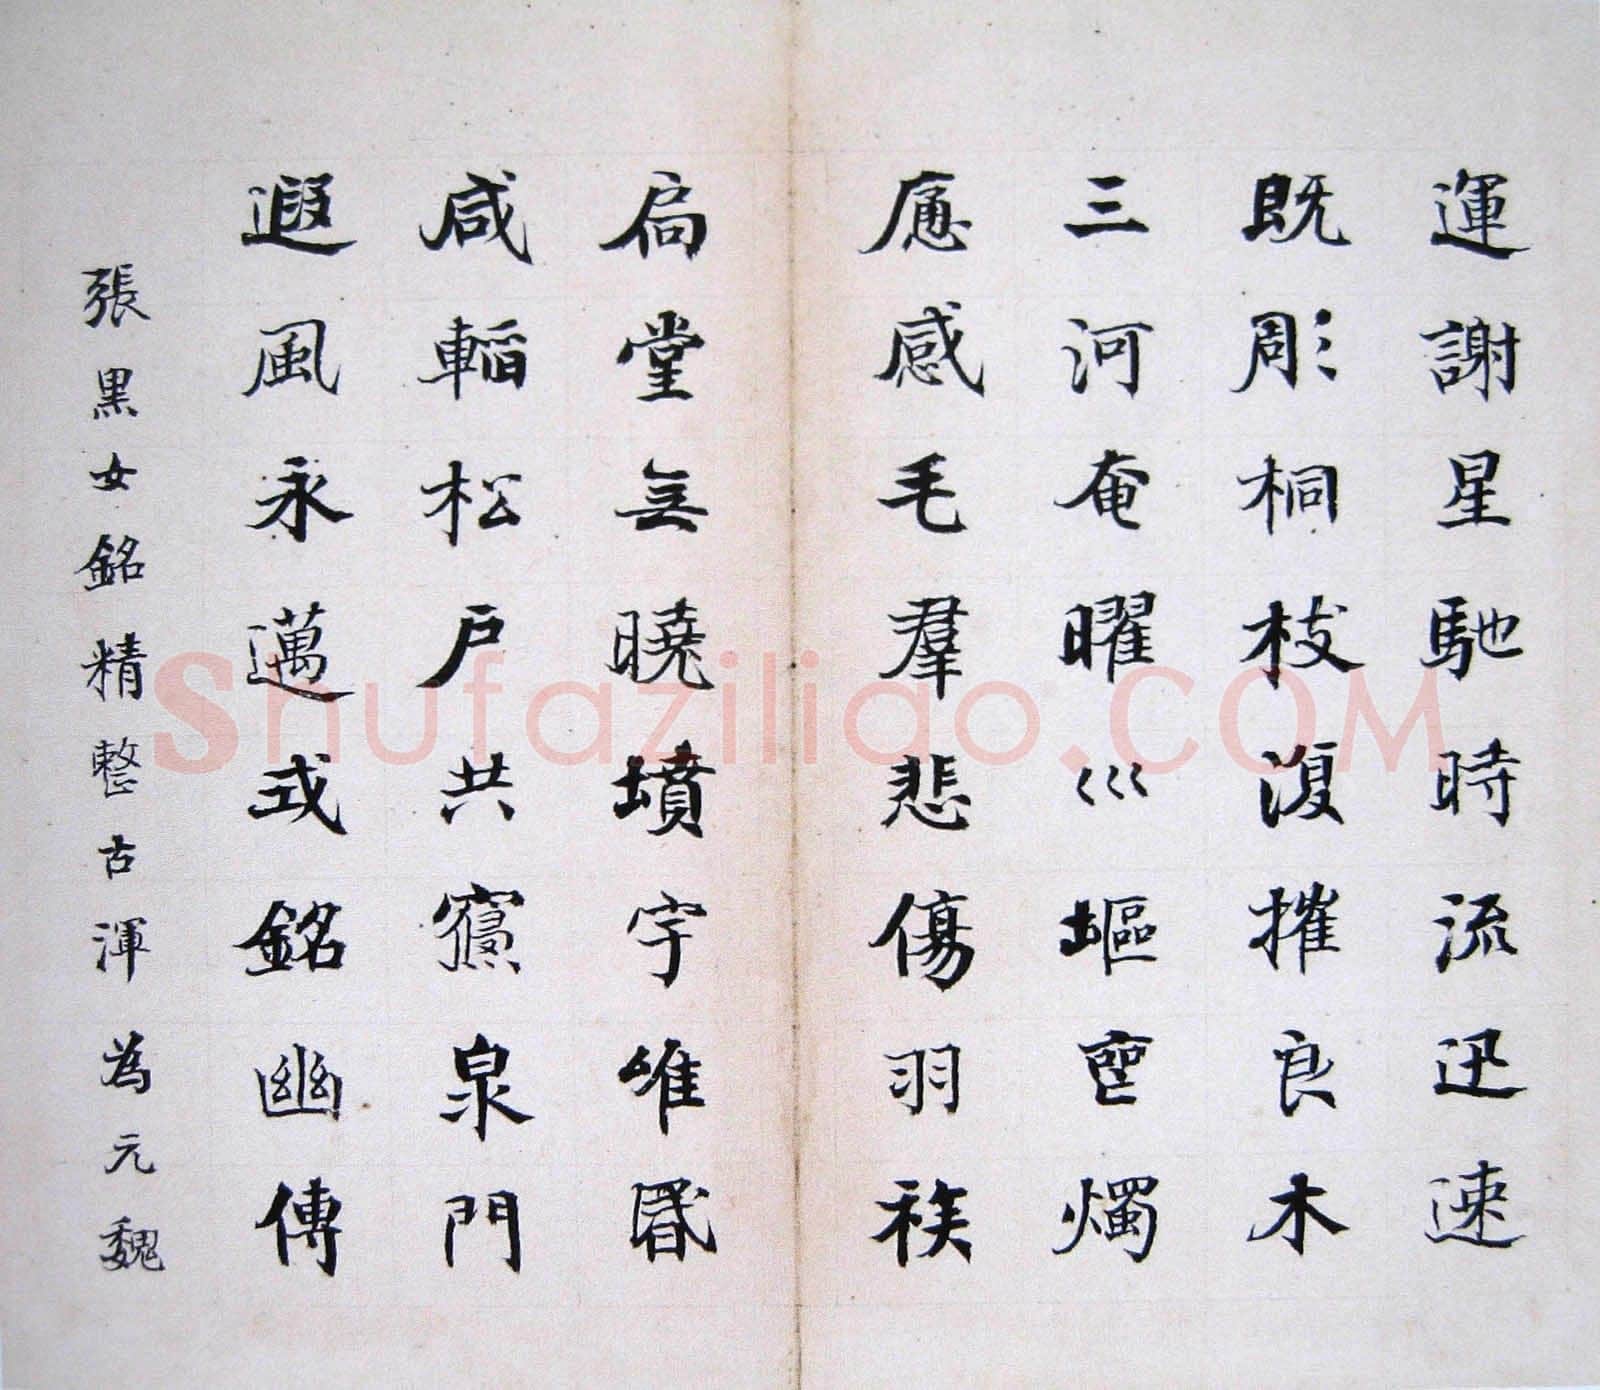 運謝星馳時流迅速
既彫桐枝復摧良木
三河奄曜巛堰寚燭
應感毛羣悲傷羽族
扃堂無曉墳宇唯昏
咸韜松戶共寢泉門
遐風永邁式銘幽傳
張黑女銘精整古渾為元魏
Shufaziliao.COM